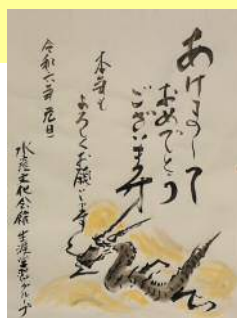 あけまして
おめでとう
ございます
本年も
よろしくお願いします
令和六年元旦
水窪文化会館生涯学習グループ